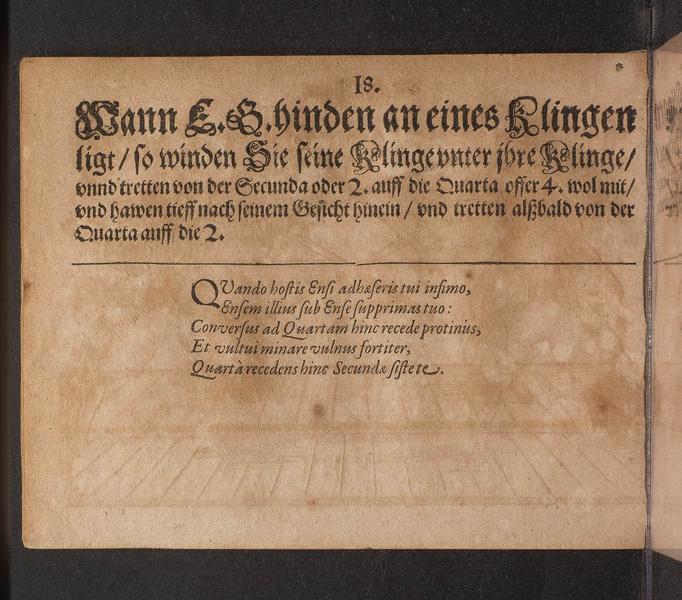 18.
Wann E. G. hinden an eines Klingen
ligt / so winden Sie seine Klinge vnter jhre Klinge /
vnnd tretten von der Secunda oder 2. auff die Quarta offer 4. wol mit /
vnd hawen tieff nach seinem Gesicht hinein / vnd tretten alßbald von der
Quarta auff die 2.
QVando hostis Ensi adhæseris tui infimo,
Ensem illius sub Ense supprimas tuo:
Conversus ad Quartam hinc recede protinùs,
Et vultui minare vulnus fortiter,
Quartâ recedens hinc Secundæ siste te.